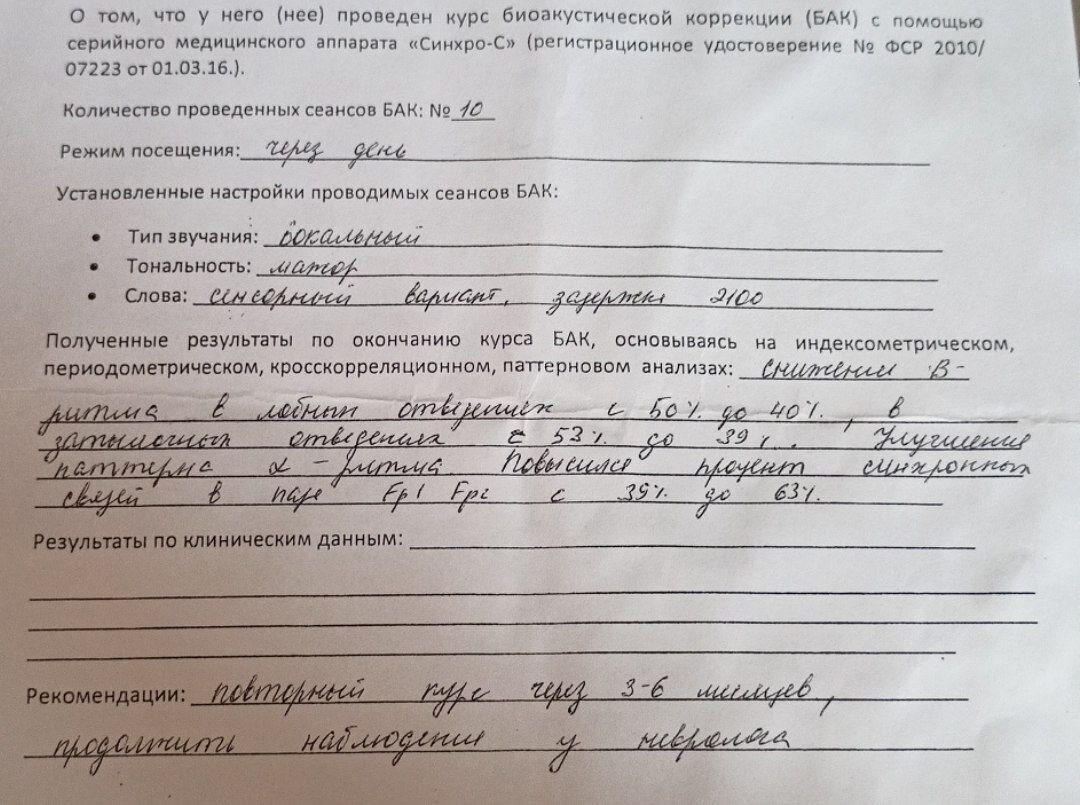 О том, что у него (нее) проведен курс биоакустической коррекции (БАК) с помощью
серийного медицинского аппарата «Синхро-С» (регистрационное удостоверение № ФСР 2010/
07223 от 01.03.16.).
Количество проведенных сеансов БАК: № 10
Режим посещения: через день
Установленные настройки проводимых сеансов БАК:
• Тип звучания: вокальный
• Тональность: мажор
• Слова: сенсорный вариант, задержка 2100
Полученные результаты по окончанию курса БАК, основываясь на индексометрическом,
периодометрическом, кросскорреляционном, паттерновом анализах: снижение B-
ритма в лобных отведениях с 50% до 40%, в
затылочных отведениях с 53% до 39%. Улучшение
паттерна α-ритма. Повысился процент синхронных
связей в паре Fp1 Fp2 с 39% до 63%.
Результаты по клиническим данным:
Рекомендации: повторный курс через 3-6 месяцев,
продолжить наблюдение у невролога